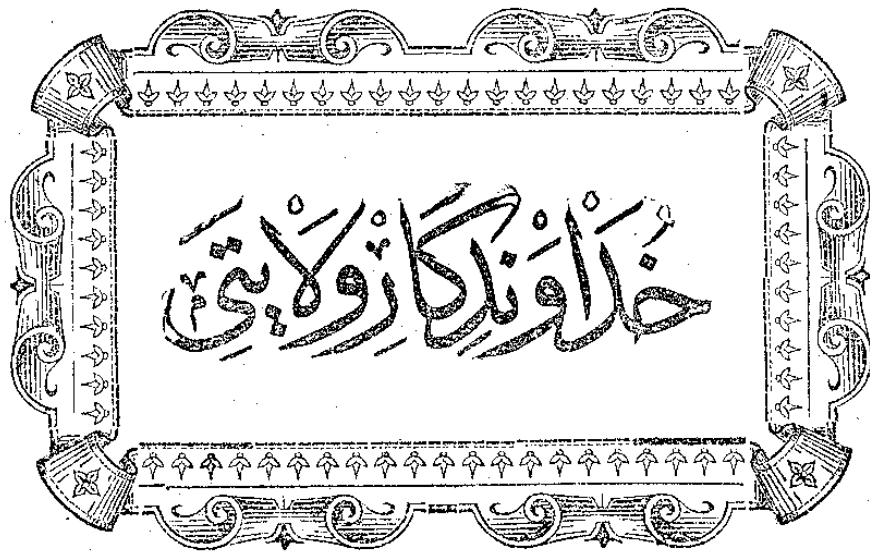 خُدَاوَنْدِكَارْ وِلَايَتِى